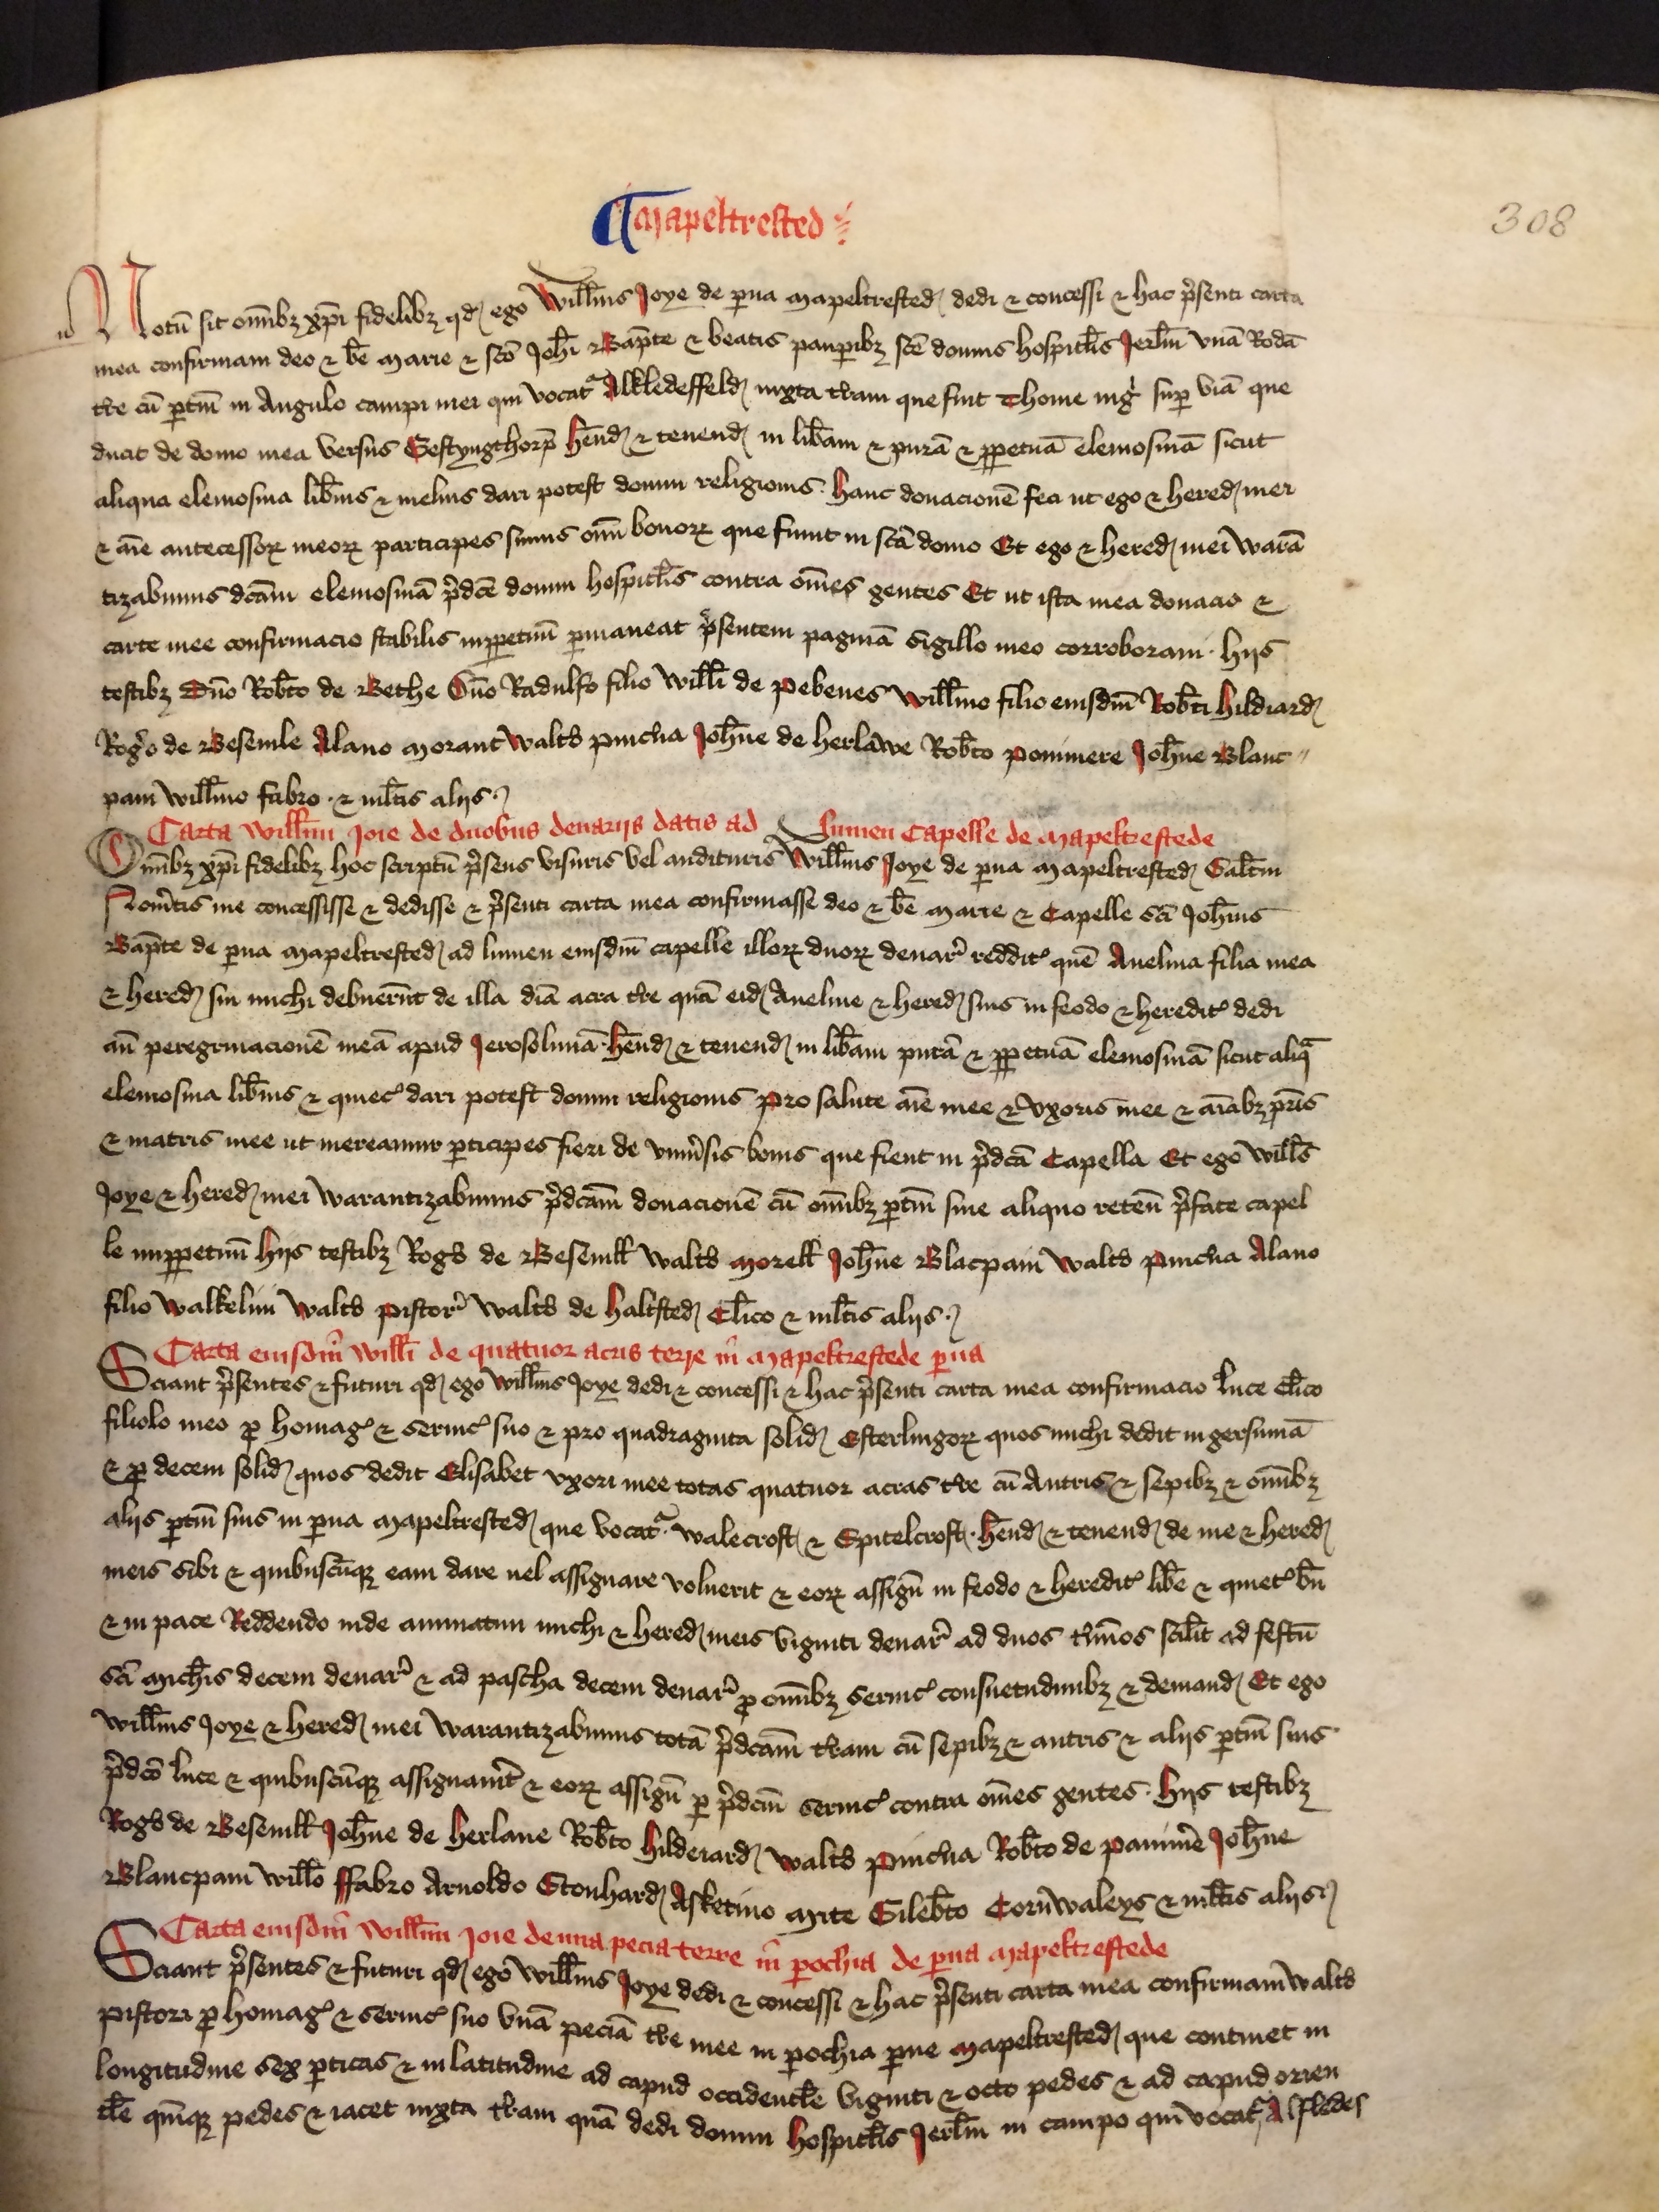 Mapeltrested
308
Notū sit om̄ibȝ xp̄i fidelibȝ qd ego Will̄ms Joye de pua Mapeltrested dedi ⁊ concessi ⁊ hac p̄senti carta
mea confirmaui deo ⁊ bē Marie ⁊ scō Joh̄i Bap̄te ⁊ beatis paupibȝ scē domus hospitl̄is Jerl̄m vnā Rodā
tr̄e cū ptin̄ in Angulo campi mei qui vocatr Alkledesfeld iuxta tr̄am que fuit Thome sup viā que
ducit de domo mea versus Gestyngthorp̄ h̄end ⁊ tenend in lib̄am ⁊ purā ⁊ ppetuā elemosinā sicut
aliqua elemosina lib̄ius ⁊ melius dari potest domui religionis. hanc donacionē feci ut ego ⁊ hered mei
⁊ aīe antecessoꝝ meoꝝ participes simus om̄i bonoꝝ que fiunt in scā domo Et ego ⁊ hered mei warā
tizabimus dcām elemosinā p̄dcē domui hospitl̄is contra om̄es gentes Et ut ista mea donacio ⁊
carte mee confirmacio stabilis inppetuū pmaneat p̄sentem paginā sigillo meo corroboraui. hijs
testibȝ Dn̄o Rob̄to de Bethe Dn̄o Radulfo filio Will̄i de Pebenes Will̄mo filio eiusdm̄ Rob̄ti hildiard
Roḡo de Beseuile Alano Morant Walt̄o Pincha Joh̄ne de herlawe Rob̄to Pommere Joh̄ne Blanc
pain Will̄mo fabro. ⁊ mlt̄is alijs
Carta Will̄mi Joie de duobus denarijs datis ad lumen Capelle de Mapeltrestede
Om̄ibȝ xp̄i fidelibȝ hoc scriptū p̄sens visuris vel audituris Will̄ms Joye de pua Mapeltrested Salt̄m
Nou̅tis me concessisse ⁊ dedisse ⁊ p̄senti carta mea confirmasse deo ⁊ bē Marie ⁊ Capelle scī Joh̄nis
Bap̄te de pua Mapeltrested ad lumen eiusdm̄ capelle illoꝝ duoꝝ denar reddit quē Auelina filia mea
⁊ hered sui michi debuer̄nt de illa di̅a acra tr̄e quā eid Aueline ⁊ hered suis in feodo ⁊ heredit dedi
an̄ peregrinacionē meā apud Jerosolimā. h̄end ⁊ tenend in lib̄am purā ⁊ ppetuā elemosinā sicut aliqa
elemosina lib̄ius ⁊ quiec dari potest domui religionis pro salute aīe mee ⁊ Vxoris mee ⁊ aīabȝ pr̄is
⁊ matris mee ut mereamur pticipes fieri de vniu̅sis bonis que fient in p̄dcā Capella Et ego will̄s
Joye ⁊ hered mei warantizabimus p̄dcām donacionē cū om̄ibȝ ptin̄ sine aliquo reten̄ p̄fate capel
le inppetuū hijs testibȝ Roḡo de Beseuill Walt̄o Morell Joh̄ne Blacpain Walt̄o Pincha Alano
filio Walkelini Walt̄o Pistor Walt̄o de halsted Cl̄ico ⁊ mlt̄is alijs
Carta eiusdm̄ Will̄i de quatuor acris terre in Mapeltrestede pua
Sciant p̄sentes ⁊ futuri qd ego Will̄ms Joye dedi ⁊ concessi ⁊ hac p̄senti carta mea confirmacio Luce cl̄ico
filiolo meo p homag ⁊ seruic suo ⁊ pro quadraginta solid Esterlingoꝝ quos michi dedit in gersumā
⁊ p decem solid quos dedit Elisabet vxori mee totas quatuor acras tr̄e cū Antris ⁊ sepibȝ ⁊ om̄ibȝ
alijs ptin̄ suis in pua Mapeltrested que vocatr. Walecroft ⁊ Spitelcroft. h̄end ⁊ tenend de me ⁊ hered
meis sibi ⁊ quibuscūqꝫ eam dare uel assignare voluerit ⁊ eoꝝ assign̄ in feodo ⁊ heredit lib̄e ⁊ quiet bn̄
⁊ in pace Reddendo inde annuatim michi ⁊ hered meis viginti denar ad duos tm̄inos scilt̄ ad festū
scī Mich̄is decem denar ⁊ ad pascha decem denar p om̄ibȝ seruic consuetudinibȝ ⁊ demand Et ego
Will̄ms Joye ⁊ hered mei warantizabimus totā p̄dcām tr̄am cū sepibȝ ⁊ antris ⁊ alijs ptin̄ suis
p̄dcō luce ⁊ quibuscūqꝫ assignauit̄ ⁊ eoꝝ assign̄ p p̄dcm̄ seruic contra om̄es gentes. hijs testibȝ
Roḡo de Beseuill Joh̄ne de herlaue Rob̄to hildeiard Walt̄o Pincha Rob̄to de Pammē Joh̄ne
Blancpain Will̄o ffabro Arnoldo Stonhard Asketino Mite Gileb̄to Cornwaleys ⁊ mlt̄is alijs
Carta eiusdm̄ Will̄mi Joie de una pecia terre in pochia de pua Mapeltrestede
Sciant p̄sentes ⁊ futuri qd ego Will̄ms Joye dedi ⁊ concessi ⁊ hac p̄senti carta mea confirmaui Walt̄o
pistori p homag ⁊ seruic suo vnā peciā tr̄e mee in pochia pue Mapeltrested que continet in
longitudine sex pticas ⁊ in latitudine ad capud occidentl̄e viginti ⁊ octo pedes ⁊ ad capud orien
tl̄e quīqꝫ pedes ⁊ iacet iuxta tr̄am quā dedi domui hospitl̄is Jerl̄m in campo qui vocatr Alfledes